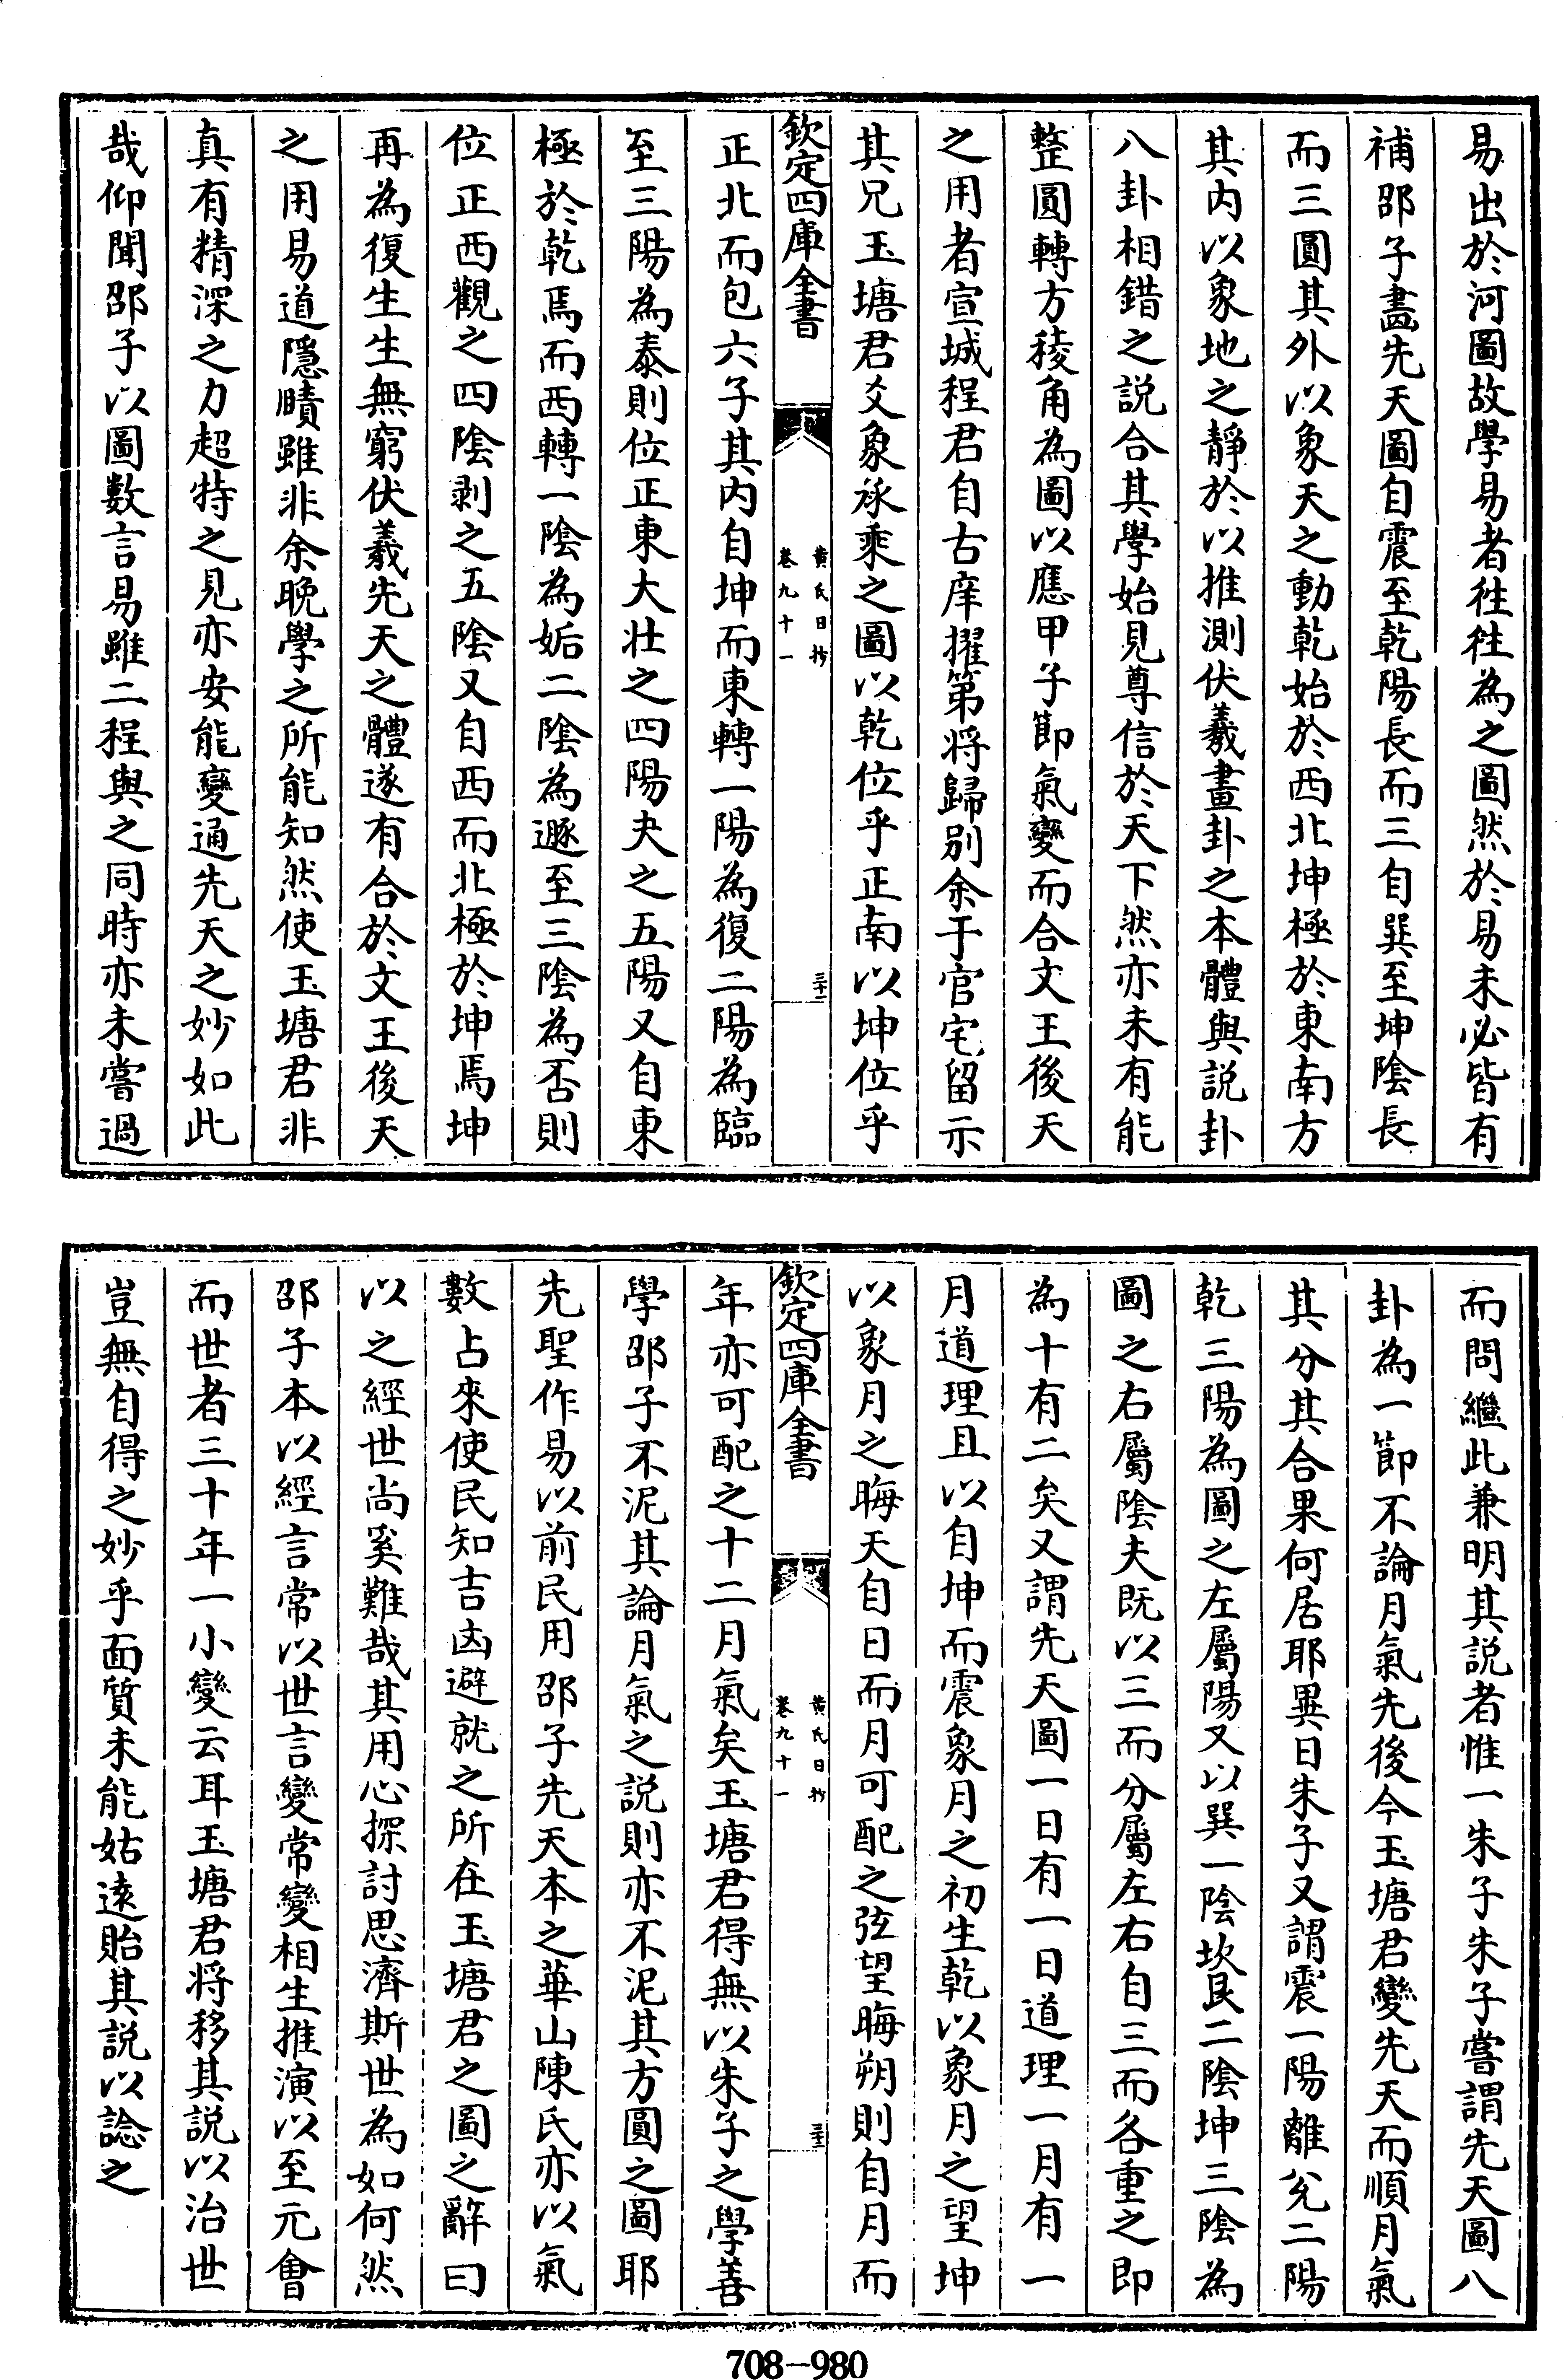 易出於河圖故學易者徃徃為之圖然於易未必皆有
補邵子畫先天圖自震至乾陽長而三自巽至坤陰長
而三圓其外以象天之動乾始於西北坤極於東南方
其内以象地之靜於以推測伏羲畫卦之本體與説卦
八卦相錯之説合其學始見尊信於天下然亦未有能
整圓轉方稜角為圖以應甲子節氣變而合文王後天
之用者宣城程君自古庠擢第将歸别余于官宅留示
其兄玉塘君爻象承乘之圖以乾位乎正南以坤位乎
欽定四庫全書
黄氏日抄
卷九十一
三十一
正北而包六子其内自坤而東轉一陽為復二陽為臨
至三陽為泰則位正東大壮之四陽夬之五陽又自東
極於乾焉而西轉一陰為姤二陰為遯至三陰為否則
位正西觀之四陰剥之五陰又自西而北極於坤焉坤
再為復生生無窮伏羲先天之體遂有合於文王後天
之用易道隱賾雖非余晩學之所能知然使玉塘君非
真有精深之力超特之見亦安能變通先天之妙如此
哉仰聞邵子以圖數言易雖二程與之同時亦未嘗過
而問繼此兼明其説者惟一朱子朱子嘗謂先天圖八
卦為一節不論月氣先後今玉塘君變先天而順月氣
其分其合果何居耶異日朱子又謂震一陽離兊二陽
乾三陽為圖之左屬陽又以巽一陰坎艮二陰坤三陰為
圖之右屬陰夫既以三而分屬左右自三而各重之即
為十有二矣又謂先天圖一日有一日道理一月有一
月道理且以自坤而震象月之初生乾以象月之望坤
以象月之晦天自日而月可配之弦望晦朔則自月而
欽定四庫全書
黄氏日抄
卷九十一
三十二
年亦可配之十二月氣矣玉塘君得無以朱子之學善
學邵子不泥其論月氣之説則亦不泥其方圓之圖耶
先聖作易以前民用邵子先天本之華山陳氏亦以氣
數占來使民知吉凶避就之所在玉塘君之圖之辭曰
以之經世尚奚難哉其用心探討思濟斯世為如何然
邵子本以經言常以世言變常變相生推演以至元會
而世者三十年一小變云耳玉塘君将移其説以治世
豈無自得之妙乎面質未能姑逺貽其説以諗之
708-980